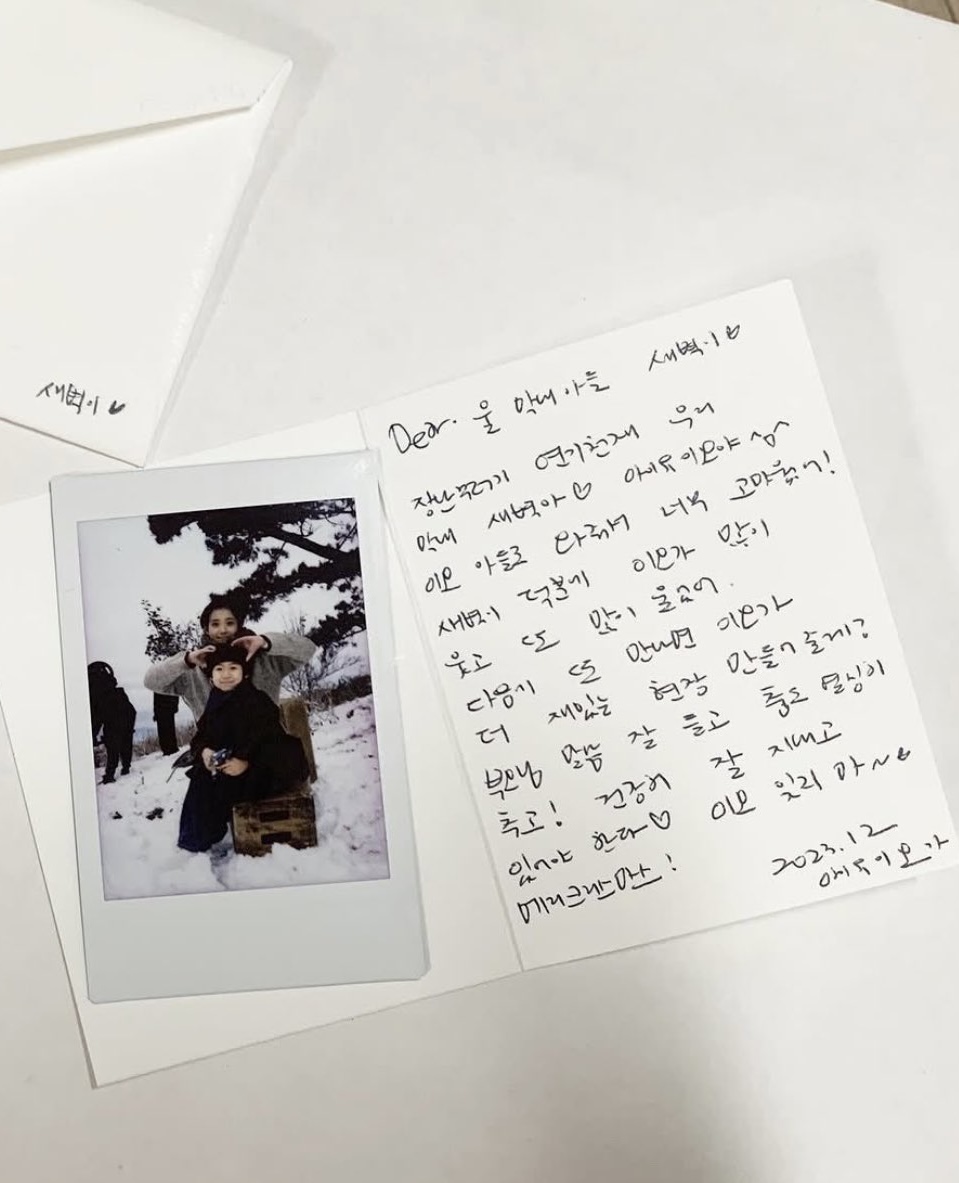 새벽이 ♥
Dear. 울 막내 아들 새벽이 ♡
장난꾸러기 연기천재 우리
막내 새벽아 ♡ 아이유 이모야 ^_^
이모 아들로 와줘서 너무 고마웠어!
새벽이 덕분에 이모가 많이
웃고 또 많이 울었어.
다음에 또 만나면 이모가
더 재밌는 현장 만들어 줄게?
부모님 말씀 잘 듣고 춤도 열심히
추고! 건강히 잘 지내고
있어야 한다 ♡ 이모 잊지 마~♥
메리크리스마스!
2023.12
아이유 이모가